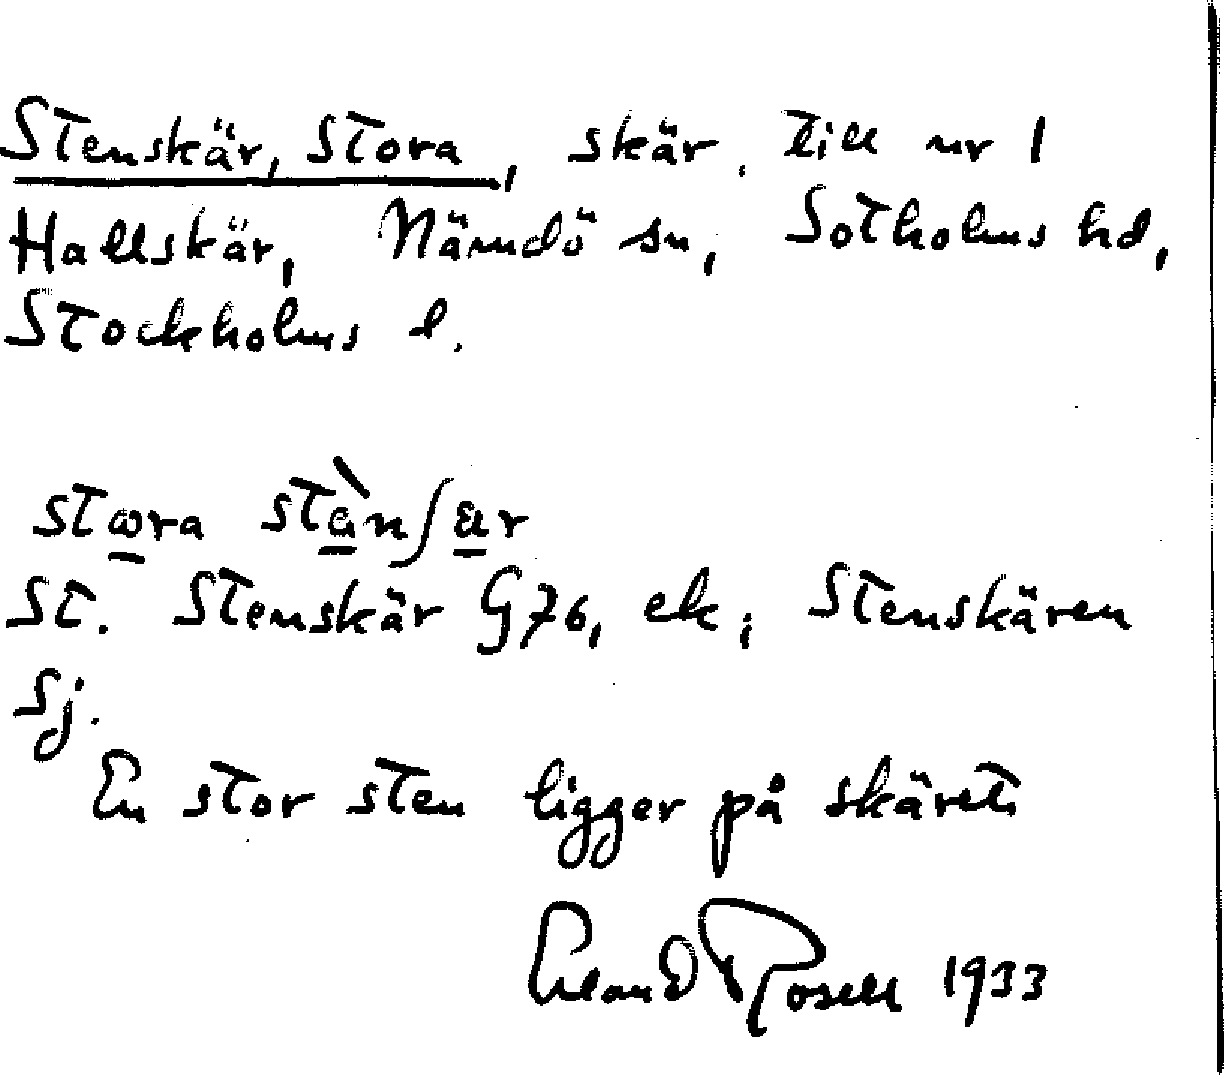 Stenskär, Stora, skär, till nr 1
Hallskär, Nämdö sn, Sotholms hd,
Stockholms l.
st. Stenskär G76, ek; Stenskären
Sj.
En stor sten ligger på skäret.
Erland Rosell 1933